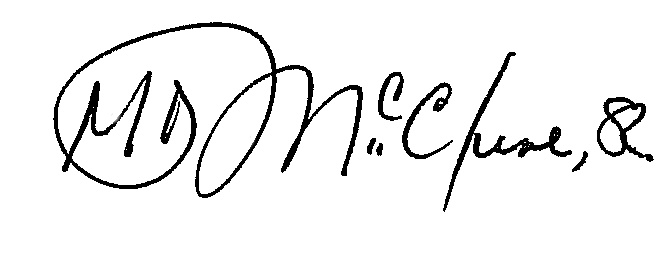 MD McClure, Sr.